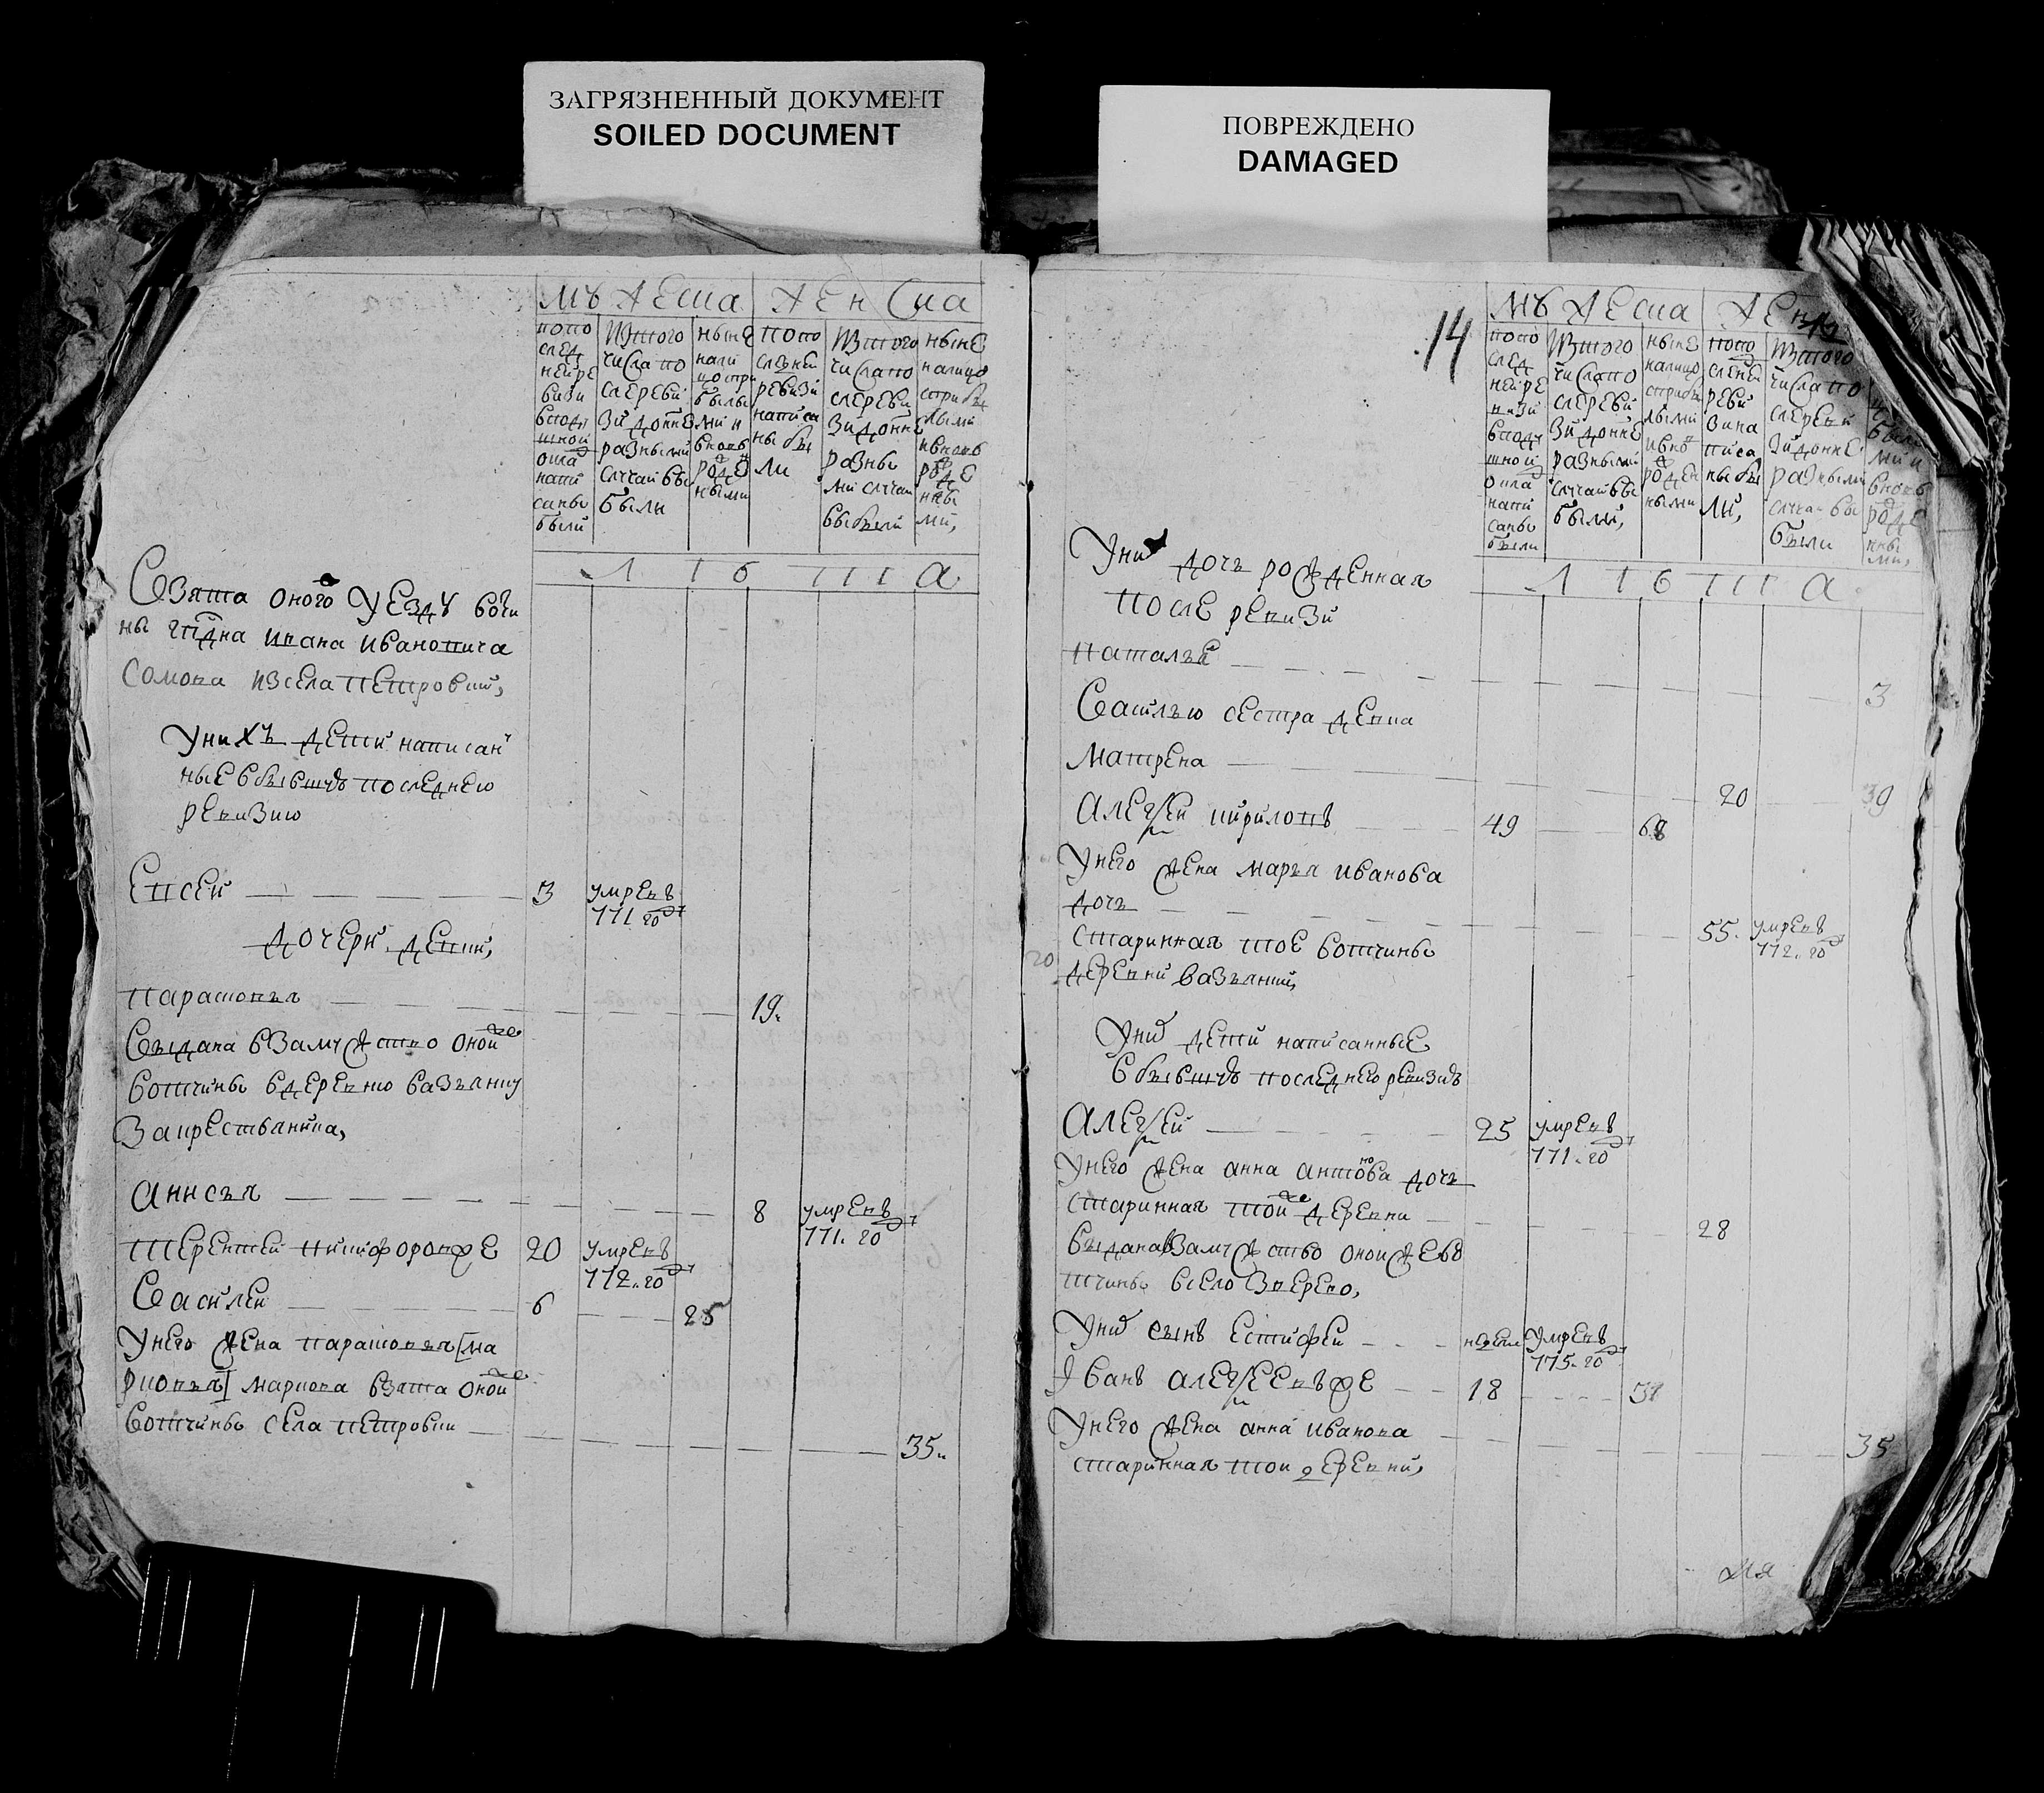 ЗАГРЯЗНЕННЫЙ ДОКУМЕНТ
SOILED DOCUMENT
мужеска женска
попо
след
ней ре
визи
поду
шной
она
напи
саны
были
изтого
числа по
сле реви
зи до нне
разными
случаи вы
были
ныне
нали
цо при
былы
ми и
вновь
роде
ными
попо
следней
ревизи
написа
ны бы
ли
изтого
числа по
сле реви
зи до нне
разны
ми случаи
выбыли
ныне
налицо
с прибы
лыми
и вновь
роде
нны
ми,
л ѣ т а
взята оного уезду вочи
ны гпдна ивана ивановича
сомова из села петровки,
у них дети написан
ные в бывшую последнею
ревизию
Евсей 3 умре в
771 го
дочери девки,
парасковья 19.
выдана взамужство оной же
вотчины в деревню вазьянку
за крестьянина,
анисья 8 умре в
771. го
терентей никифоров же 20 умре в
772. го
василей 6 25
у него жена парасковья [ма
риовья] мариова взята оной же
вотчины села петровки 35.
ПОВРЕЖДЕНО
DAMAGED
.14
мужеска женска
попо
след
ней ре
визи
поду
шной
она
напи
саны
были
изтого
числа по
сле реви
зи до нне
разными
случаи вы
были,
ныне
налицо
с прибы
лыми
и вно
роден
ными
попо
следней
реви
зи на
писа
ны бы
ли,
изтого
числа по
сле реви
зи до нне
разными
случаи вы
были
были
ми и
вновь
роде
нны
ми,
л ѣ т а
у них дочь рожденная
после ревизи
наталья 3
василью сестра девка
матрена 20 39
алексей кирилов 49 68
у него жена марья иванова
дочь 55. умре в
772. го
старинная тое вотчины
деревни вазьянки,
у них дети написанные
в бывшую последнею ревизию
алексей 25 умре в
771. го
у него жена анна антонова дочь
старинная той же деревни 28
выдана взамужство оной же во
тчины в село зверево,
у них сын естифей недели умре в
775. го
Иван алексеев же 18 31
у него жена анна иванова 35
старинная той деревни,